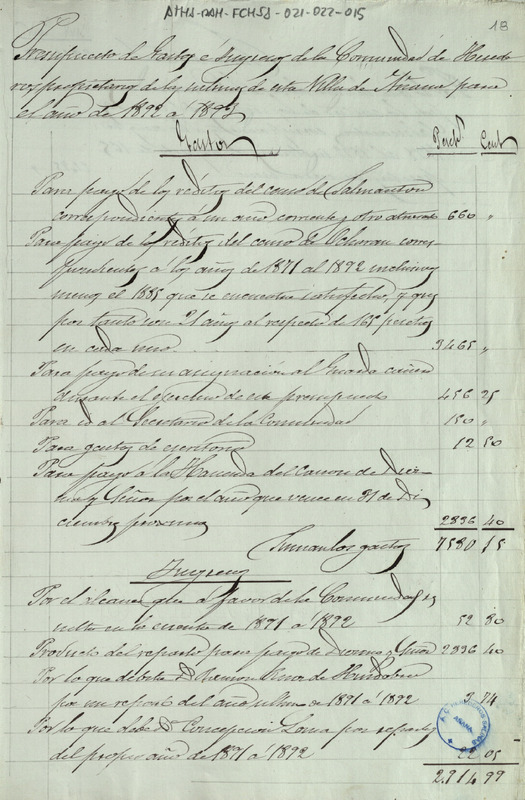 ATHA-DAH-FCHSA-021-022-015
18
Presupuesto de Gastos é Yngresos de la Comunidad de Herede
ros propietarios de las salinas de esta Villa de Añana para
el año de 1892 a 1893
Gastos
Pesetas Cent
Para pago de los réditos del censo de Salmanton
correspondientes á un año corriente y otro atrasado 660 "
Para pago de los réditos del censo de Ochoran corres-
pondientes a los años de 1871 al 1892 inclusives
menos el 1885 que se encuentra satisfecho, y que
por tanto son 21 años al respecto de 165 pesetas
en cada uno. 3465 "
Para pago de su asignación al Guarda
durante el ejercicio de este presupuesto 456 25
Para id al Secretario de la Comunidad 150 "
Para gastos de escritorio 12 50
Para pago a la Hacienda del Canon de Diez-
mos y Señor por el año que vence en 31 de Di
ciembre próximo 2836 40
Suman los gastos 7580 15
Yngresos
Por el alcance que a favor de la Comunidad re
sulta en la cuenta de 1891 a 1892 52 80
Producto del reparto para pago de Diezmo y Señor 2836 40
Por lo que debita D. Ramon de
por un reparto del año último de 1891 á 1892 3 74
Por lo que debe Dª Concepcion por reparto
del propio año de 1891 a 1892 22 05
2.914 99
AÑANA